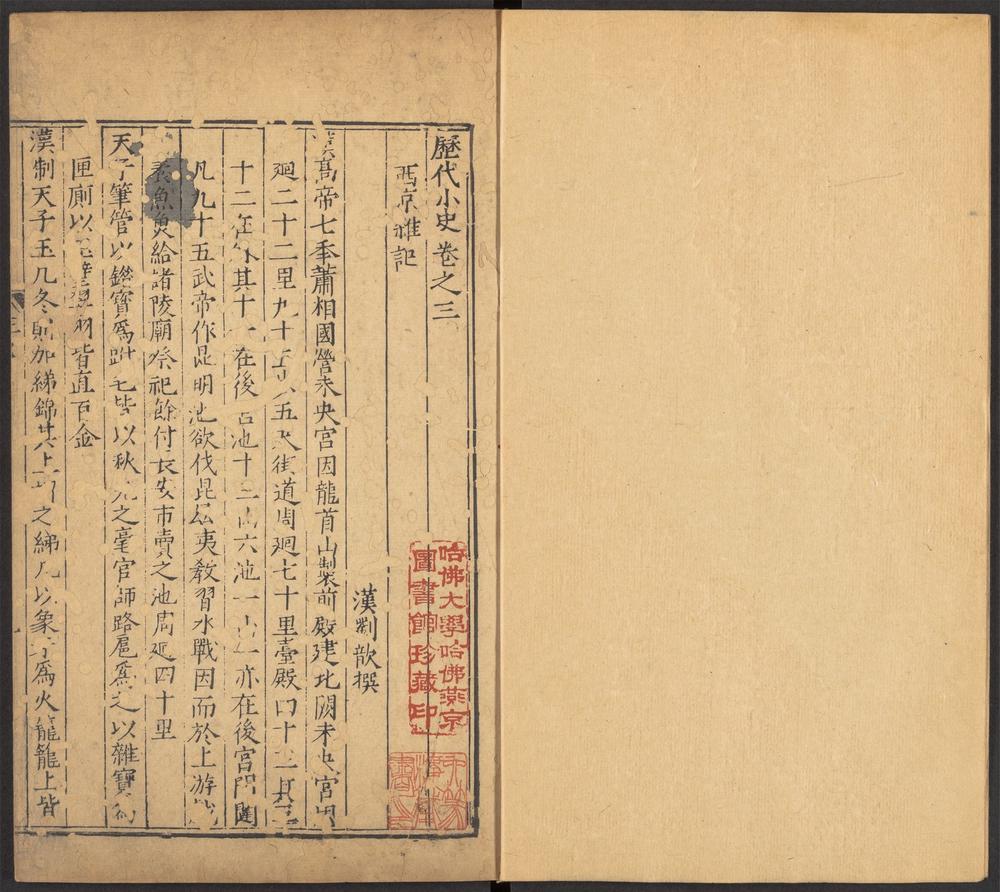 歷代小史卷之三
西京雜記
漢劉歆撰
漢高帝七年蕭相國營未央宫因龍首山製前殿建北闕未央宫周
廻二十二里九十五步五尺街道周廻七十里臺殿四十三其三
十二在外其十一在後宫池十三山六池一山一亦在後宫門闥
凡九十五武帝作昆明池欲伐昆吾夷教習水戰因而於上游戲
養魚魚給諸陵廟祭祀餘付長安市賣之池周廻四十里
天子筆管以錯寶爲跗毛皆以秋兎之毫官師路扈爲之以雜寶爲
匣厠以玉璧翠羽皆直百金
漢制天子玉几冬則加綈錦其上謂之綈几以象牙爲火籠籠上皆
哈佛大學哈佛燕京
圖書館珍藏印